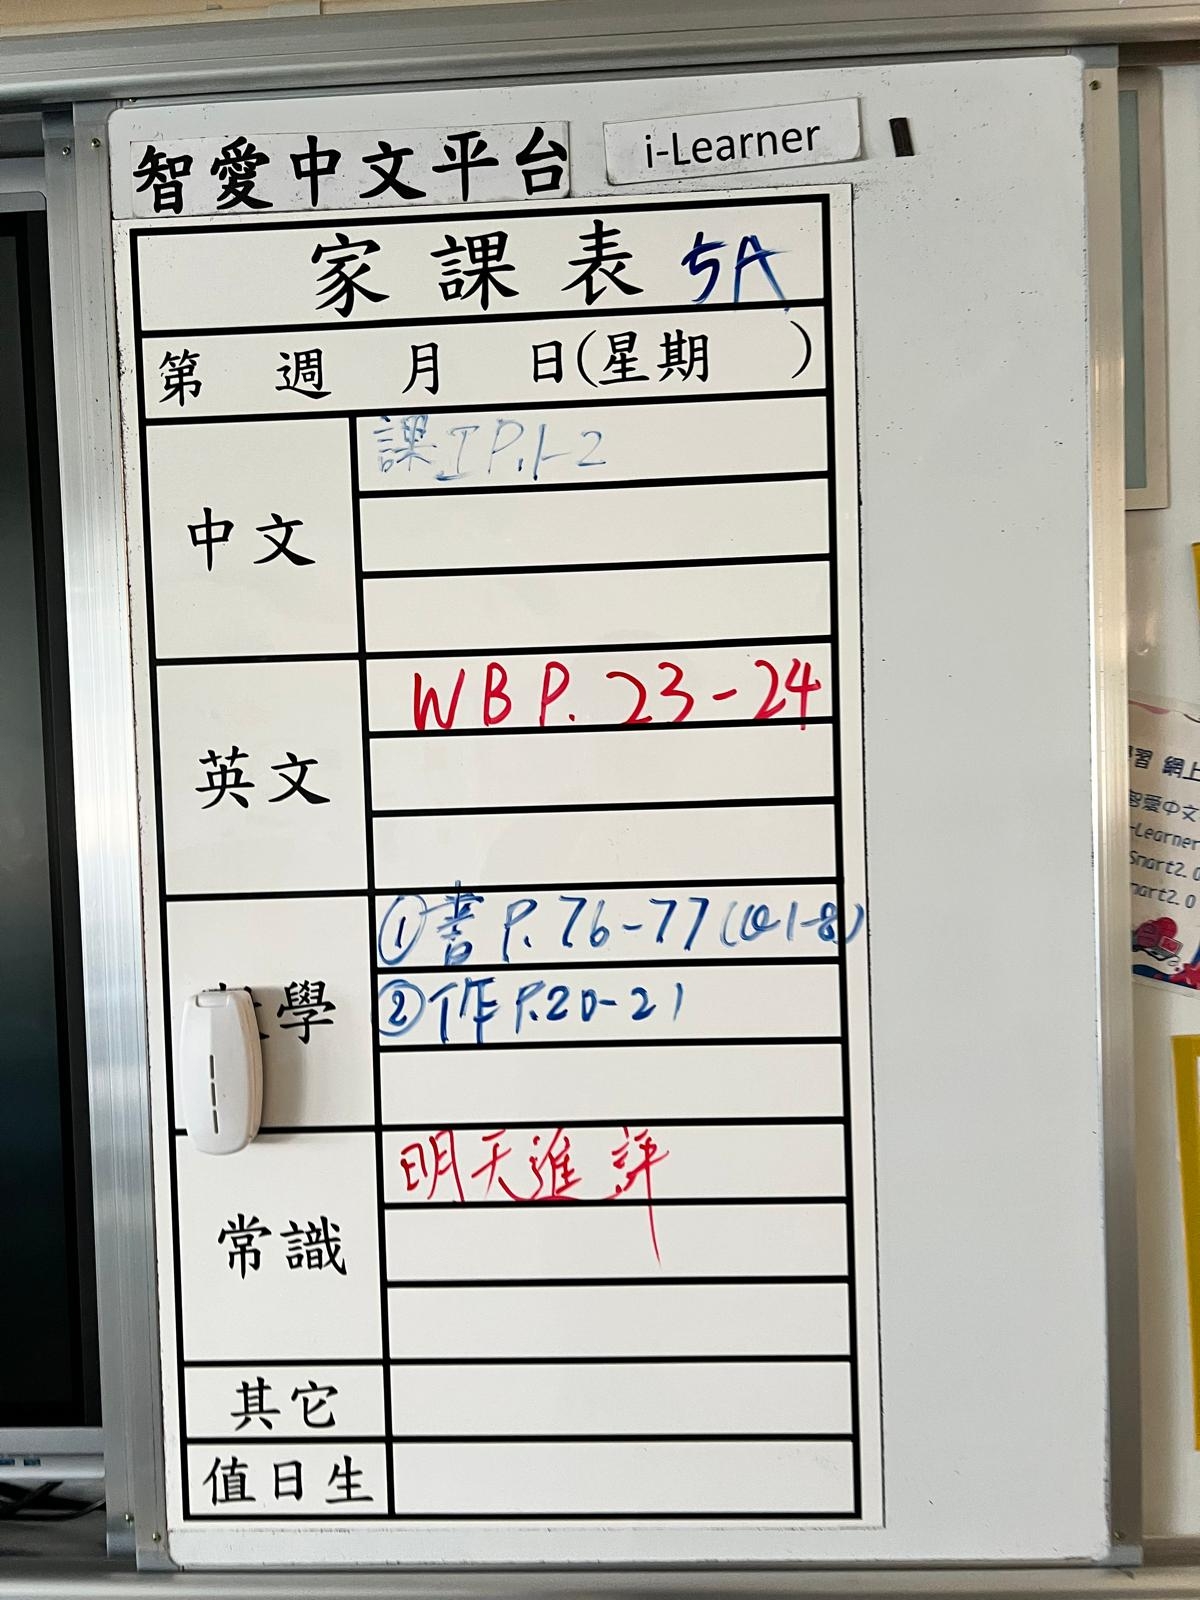 智愛中文平台
i-Learner
家課表 5A
第 週 月 日(星期 )
中文
課工P.1-2
英文
WB P. 23-24
學
①書 P. 76-77 (Q1-8)
②作 P.20-21
常識
明天進評
其它
值日生
習 網上
智愛中文
-Learner
Smart2.0
mart2.0